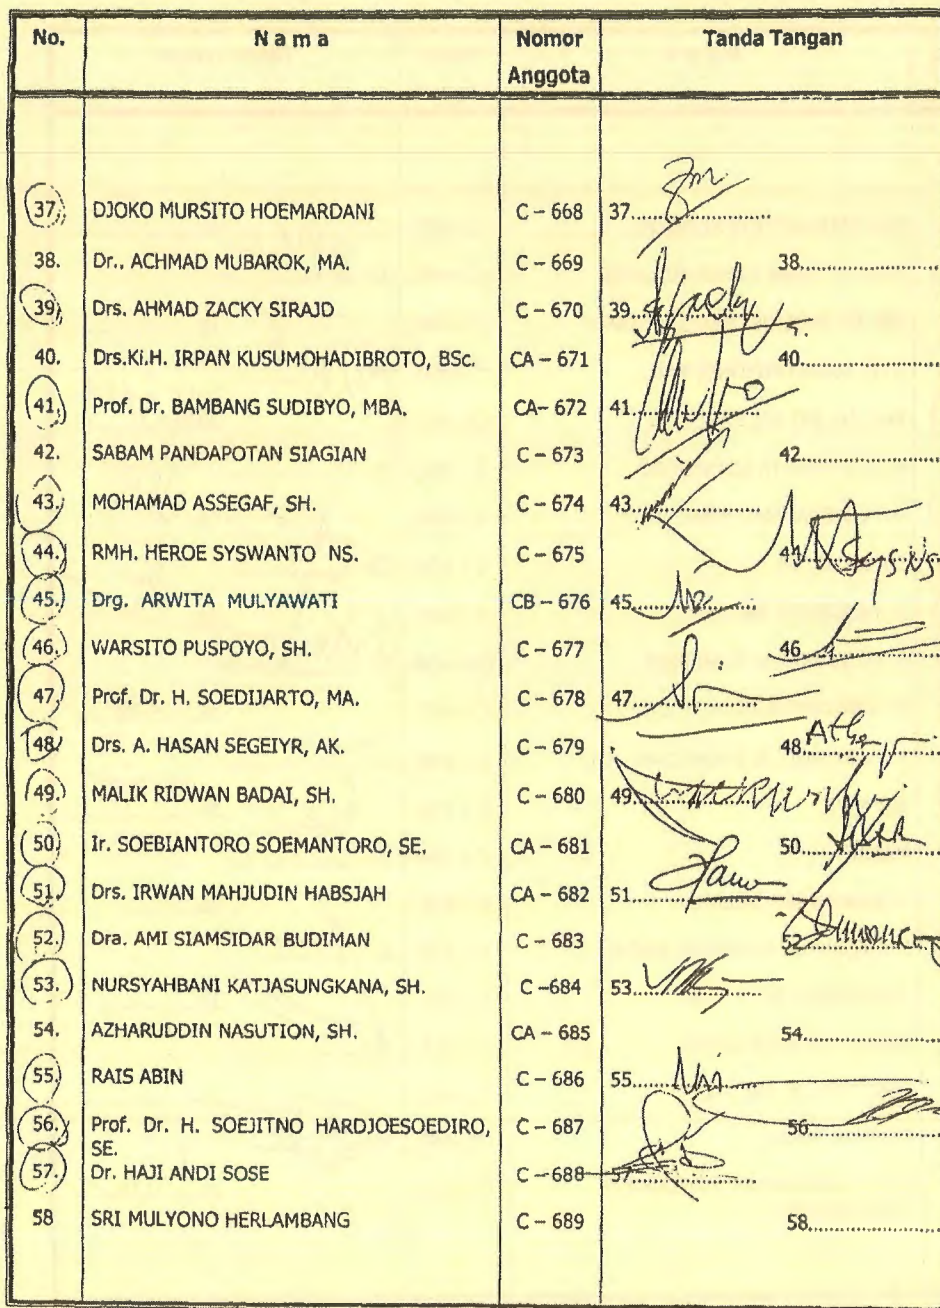 No. N a m a Nomor Anggota Tanda Tangan
37. DJOKO MURSITO HOEMARDANI C – 668 37....................
38. Dr.. ACHMAD MUBAROK, MA. C – 669 38....................
39. Drs. AHMAD ZACKY SIRAJD C – 670 39....................
40. Drs.Ki.H. IRPAN KUSUMOHADIBROTO, BSc. CA – 671 40....................
41. Prof. Dr. BAMBANG SUDIBYO, MBA. CA– 672 41....................
42. SABAM PANDAPOTAN SIAGIAN C – 673 42....................
43. MOHAMAD ASSEGAF, SH. C – 674 43....................
44. RMH. HEROE SYSWANTO NS. C – 675 44....................
45. Drg. ARWITA MULYAWATI CB – 676 45....................
46. WARSITO PUSPOYO, SH. C – 677 46....................
47. Prof. Dr. H. SOEDIJARTO, MA. C – 678 47....................
48. Drs. A. HASAN SEGEIYR, AK. C – 679 48....................
49. MALIK RIDWAN BADAI, SH. C – 680 49....................
50. Ir. SOEBIANTORO SOEMANTORO, SE. CA – 681 50....................
51. Drs. IRWAN MAHJUDIN HABSJAH CA – 682 51....................
52. Dra. AMI SIAMSIDAR BUDIMAN C – 683 52....................
53. NURSYAHBANI KATJASUNGKANA, SH. C –684 53....................
54. AZHARUDDIN NASUTION, SH. CA – 685 54....................
55. RAIS ABIN C – 686 55....................
56. Prof. Dr. H. SOEJITNO HARDJOESOEDIRO, C – 687 56....................
SE.
57. Dr. HAJI ANDI SOSE C – 688 57....................
58 SRI MULYONO HERLAMBANG C – 689 58....................